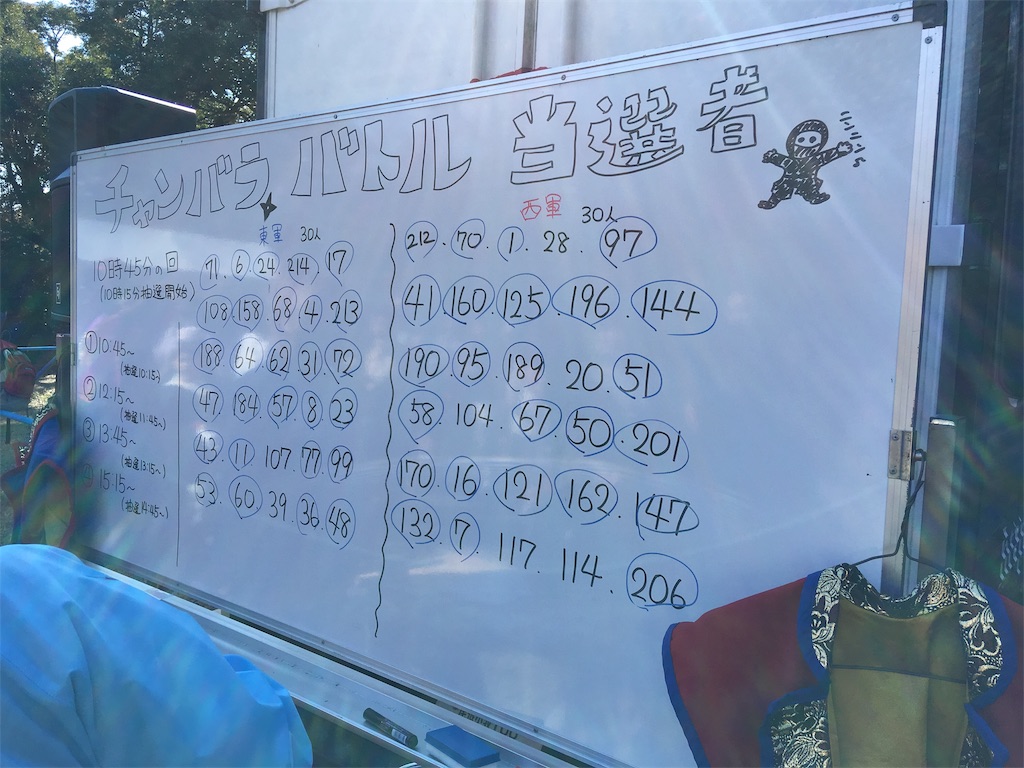 チャンバラ バトル 当選者
ニンニンニン♪
東軍 30人
西軍 30人
10時45分の回
(10時15分抽選開始)
① 10:45~
(抽選10:15~)
② 12:15~
(抽選11:45~)
③ 13:45~
(抽選13:15~)
④ 15:15~
(抽選14:45~)
71.6.24.214.17
108.158.68.4.213
188.64.62.31.72
47.184.57.8.23
43.11.107.77.99
53.60.39.36.48
212.70.1.28.97
41.160.125.196.144
190.95.189.20.51
58.104.67.50.201
170.16.121.162.147
132.7.117.114.206